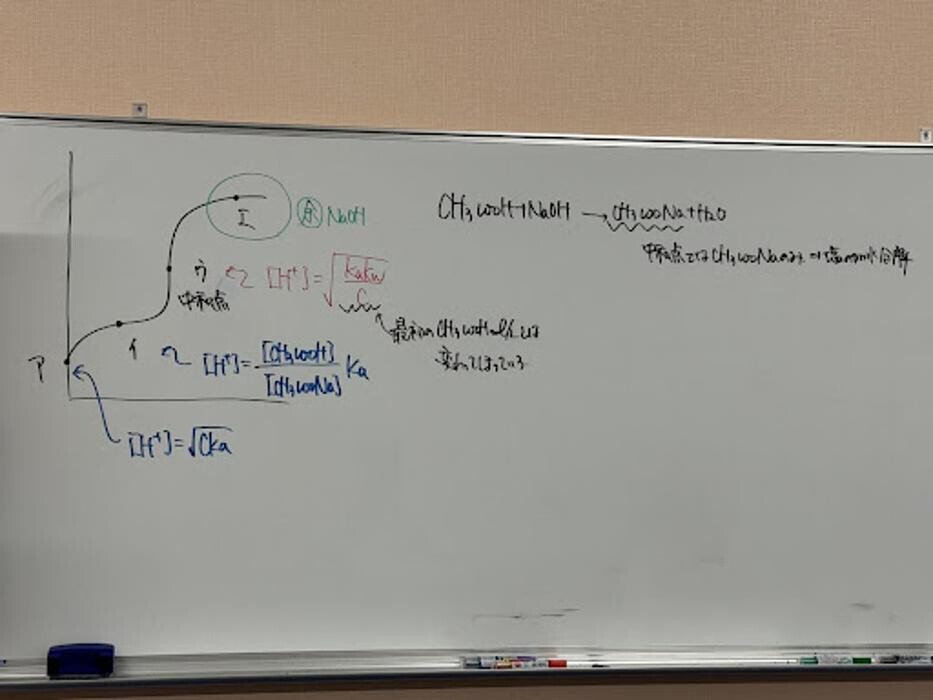 エ
余 NaOH
CH3COOH+NaOH → CH3COONa+H2O
中和点ではCH3COONaのみ ⇒ 塩の加水分解
ウ
中和点
[H+]=√KaKw/C
最初のCH3COOH mol/Lとは
変わってしまっている
イ
[H+]=[CH3COOH]/[CH3COONa] Ka
ア
[H+]=√CKa